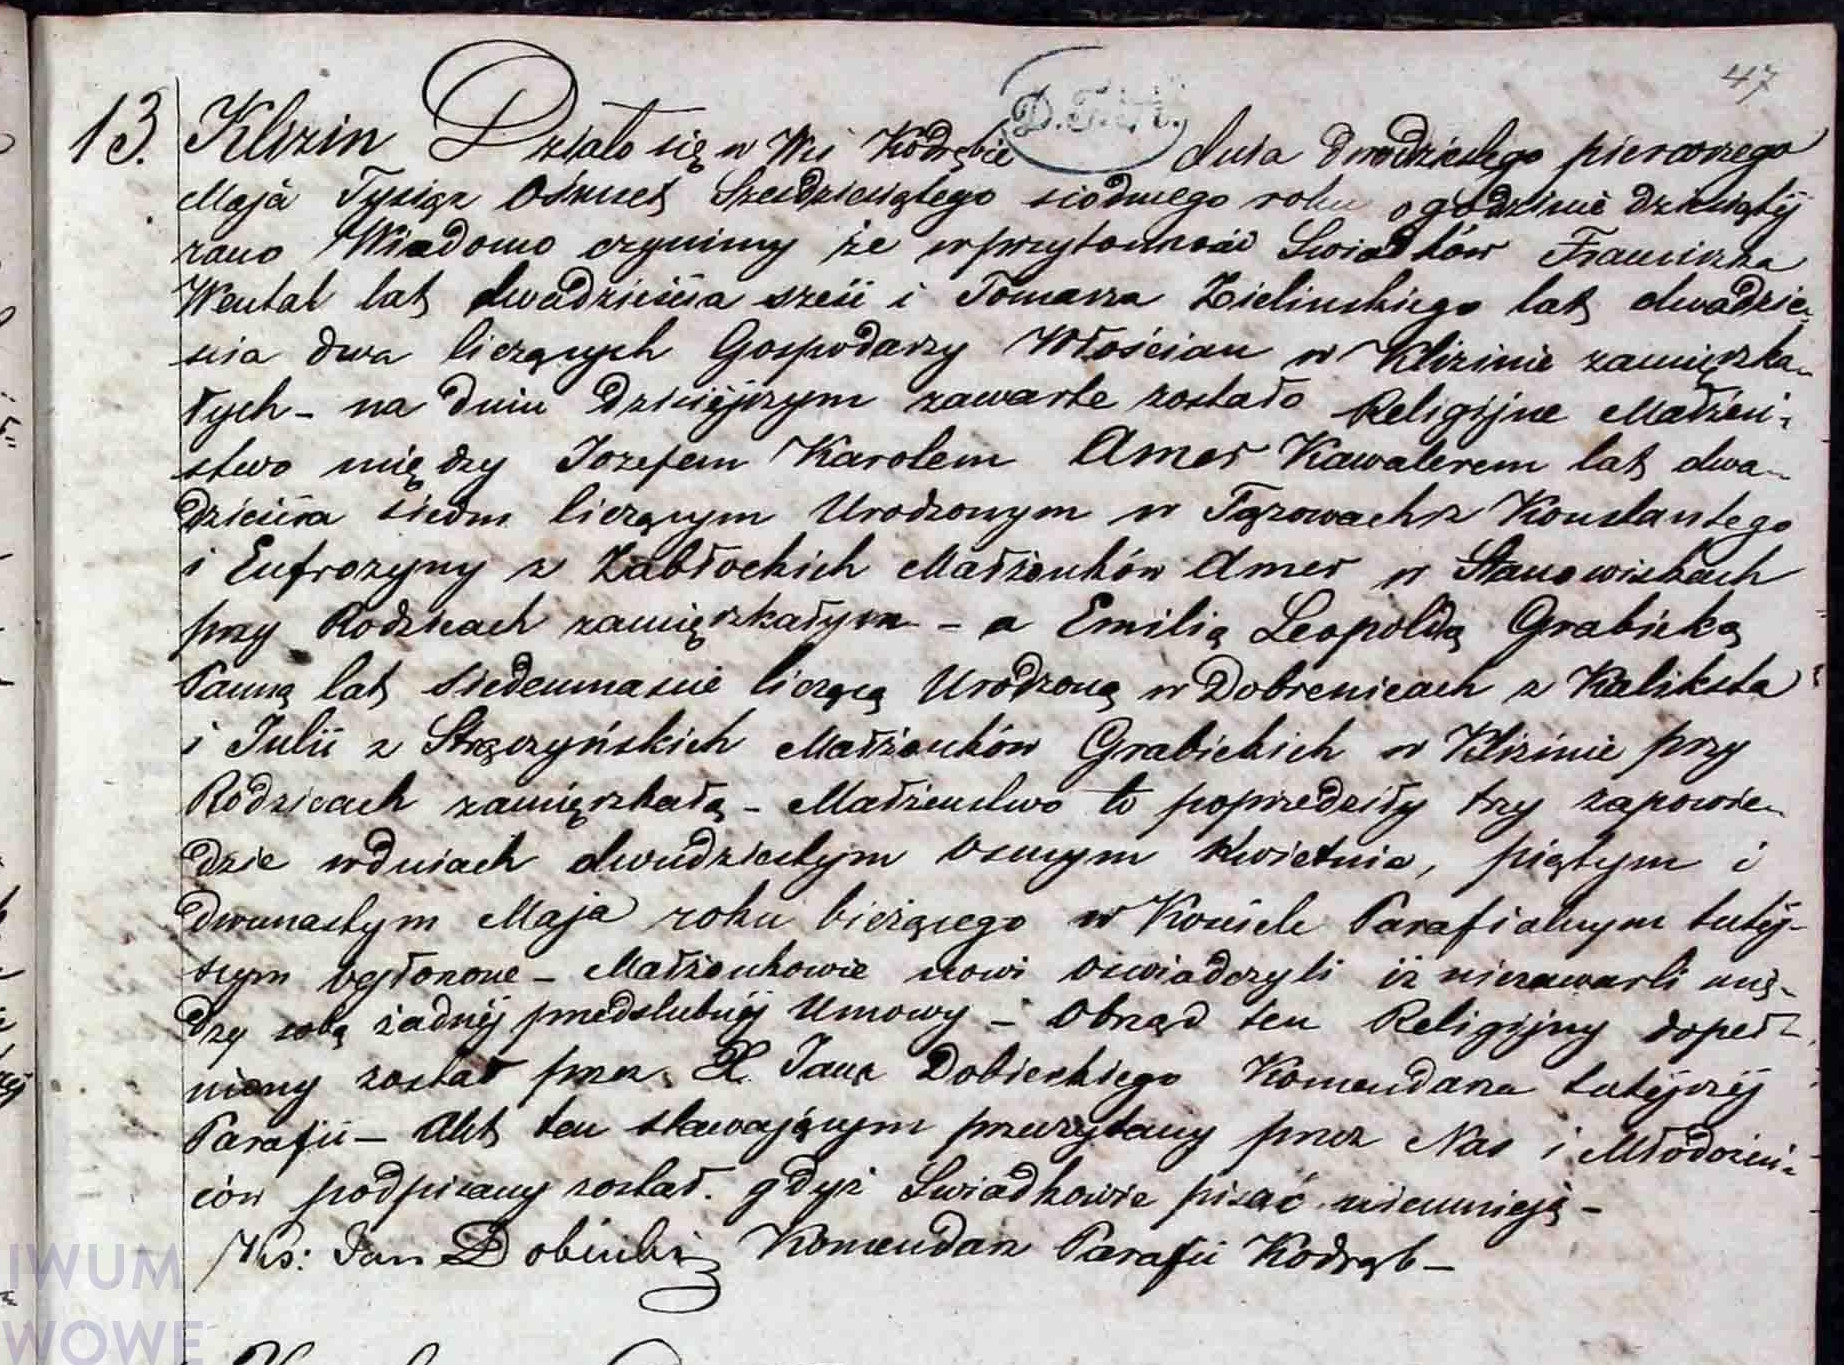 47
D.T.K.
13. Klizin Działo się w Wsi Kodrębie dnia dwudziestego pierwszego
Maja Tysiąc Ośmset Szesdziesiątego siodmego roku o godzinie dziesiątéj
rano Wiadomo czynimy że w przytomności Swiadków Franciszka
Wental lat dwadzieścia sześć i Tomasza Zielinskiego lat dwadzie-
scia dwa liczących Gospodarzy Włościan w Klizinie zamięszka-
łych – na dniu dzisiéjszym zawarte zostało Religijne Małżeń-
stwo między Jozefem Karolem Amer Kawalerem lat dwa-
dzieścia siedm liczącym Urodzonym w Tęzowach z Konstantego
i Eufrozyny z Zabłockich Małżonków Amer w Stanowiskach
przy Rodzicach zamięszkałym – a Emilią Leopoldą Grabicką
Panną lat siedemnascie liczącą Urodzoną w Dobrenicach z Kaliksta
i Julii z Strączyńskich Małżonków Grabickich w Klizinie przy
Rodzicach zamięszkałą – Małżenstwo to poprzedziły trzy zapowie-
dzie w dniach dwudziestym osmym Kwietnia, piątym i
dwunastym Maja roku bieżącego w Kościele Parafialnym tutéj-
szym ogłoszone – Małżonkowie nowi oswiadczyli iż niezawarli mię-
dzy sobą żadnéj przedslubnéj Umowy – Obrząd ten Religijny dopeł-
niony został przez X. Jana Dobieckiego Komendarza tutéjszéj
Parafii – Akt ten stawającym przeczytany przez Nas i Młodożeń-
ców podpisany został. gdyż Swiadkowie pisać nieumnieją –
/Ks: Jan Dobiecki Komendarz Parafii Kodrąb –
IWUM
WOWE